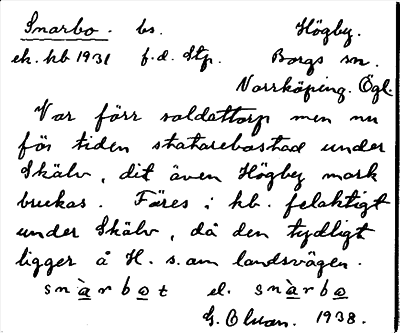 Snarbo. bs. Högby.
eh. kb 1931 f.d. Stp. Borgs sn.
Norrköping. Ögl.
Var förr soldattorp men nu
för tiden statarebostad under
Skälv, dit även Högby mark
brukas. Föres i kb. felaktigt
under Skälv, då den tydligt
ligger å H. s. om landsvägen.
snàrbot el. snàrbo
G. 1938.